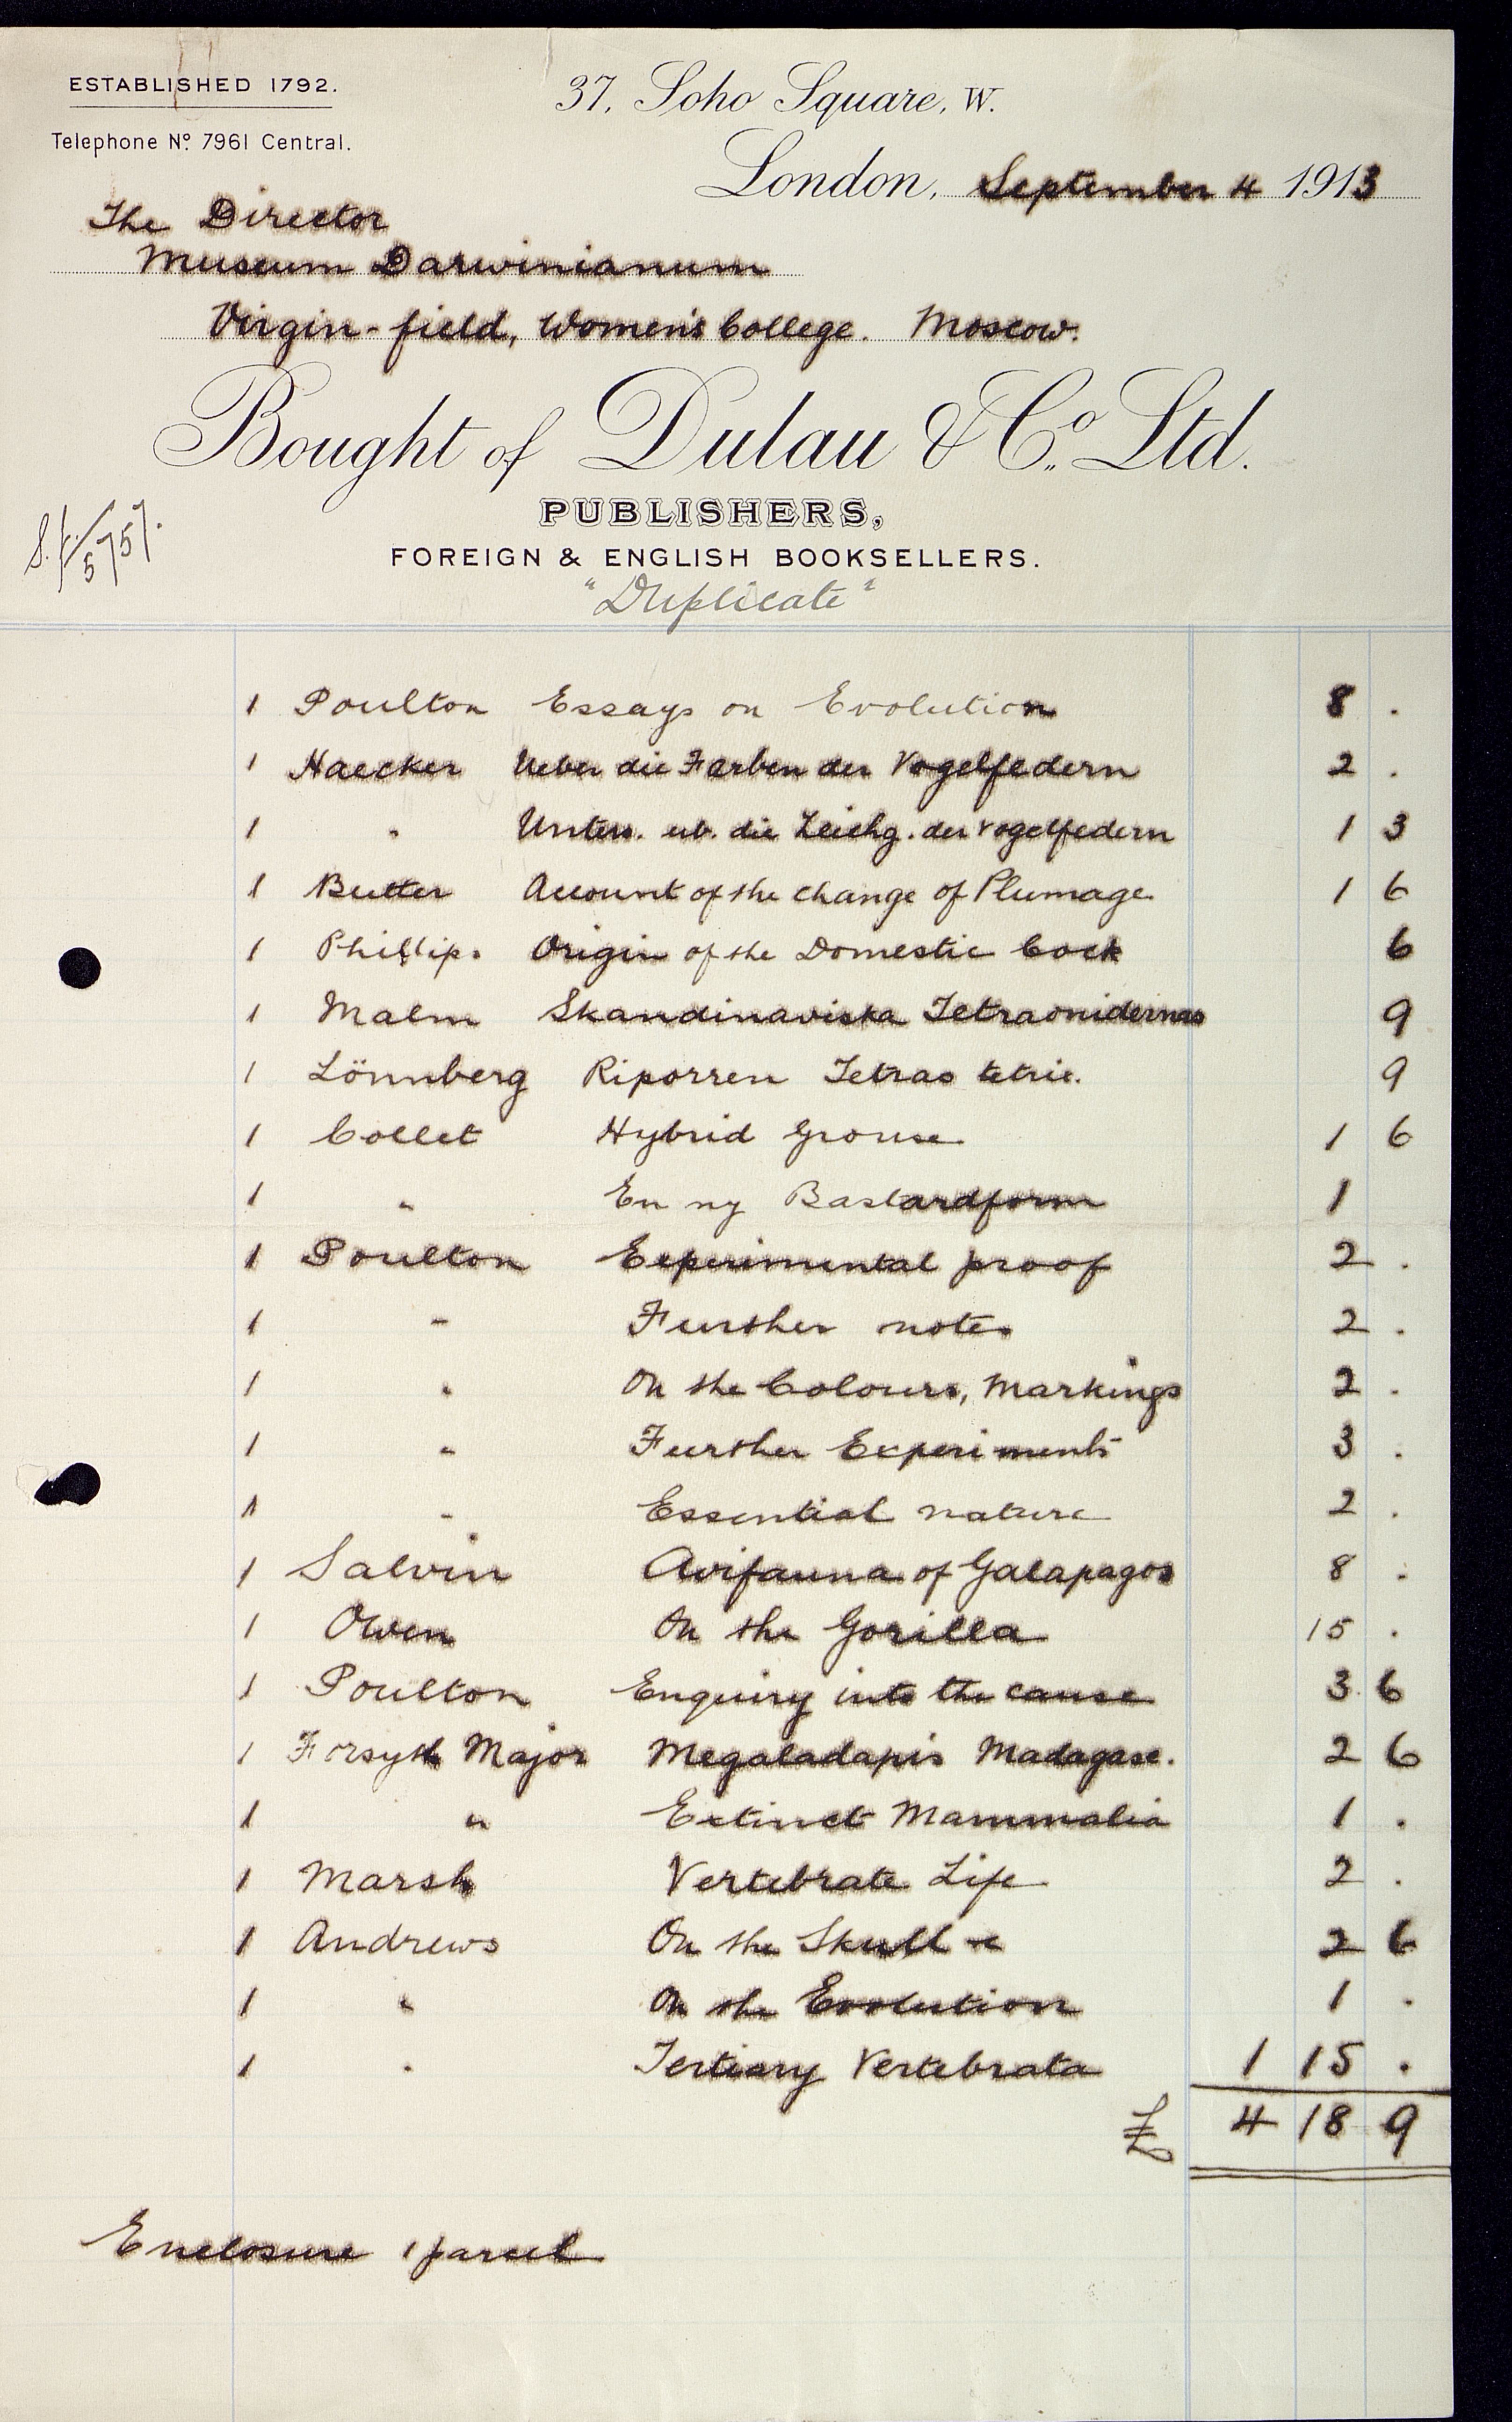 ESTABLISHED 1792.
Telephone No. 7961 Central.
37, Soho Square, W.
London, September 4 1913
The Director
Museum Darwinianum
Virgin-field, Women's College. Moscow.
Bought of Dulau & Co. Ltd.
PUBLISHERS,
FOREIGN & ENGLISH BOOKSELLERS.
"Duplicate"
1 Poulton Essays on Evolution 8 .
1 Haecker Ueber die Farben der Vogelfedern 2 .
1 " Unters. üb. die Zeichg. der Vogelfedern 1 3
1 Butter Account of the change of Plumage 1 6
1 Phillips Origin of the Domestic Cock 6
1 Malm Skandinaviska Tetraonidernas 9
1 Lönnberg Riporren Tetrao tetric. 9
1 Collet Hybrid Grouse 1 6
1 " En ny Bastardform 1
1 Poulton Experimental proof 2 .
1 " Further notes 2 .
1 " On the Colours, Markings 2 .
1 " Further Experiments 3 .
1 " Essential nature 2 .
1 Salvin Avifauna of Galapagos 8 .
1 Owen On the Gorilla 15 .
1 Poulton Enquiry into the cause 3 6
1 Forsyth Major Megaladapis Madagasc. 2 6
1 " Extinct Mammalia 1 .
1 Marsh Vertebrate Life 2 .
1 Andrews On the Skull 2 6
1 " On the Evolution 1 .
1 " Tertiary Vertebrata 1 15 .
£ 4 18 9
Enclosure 1 parcel